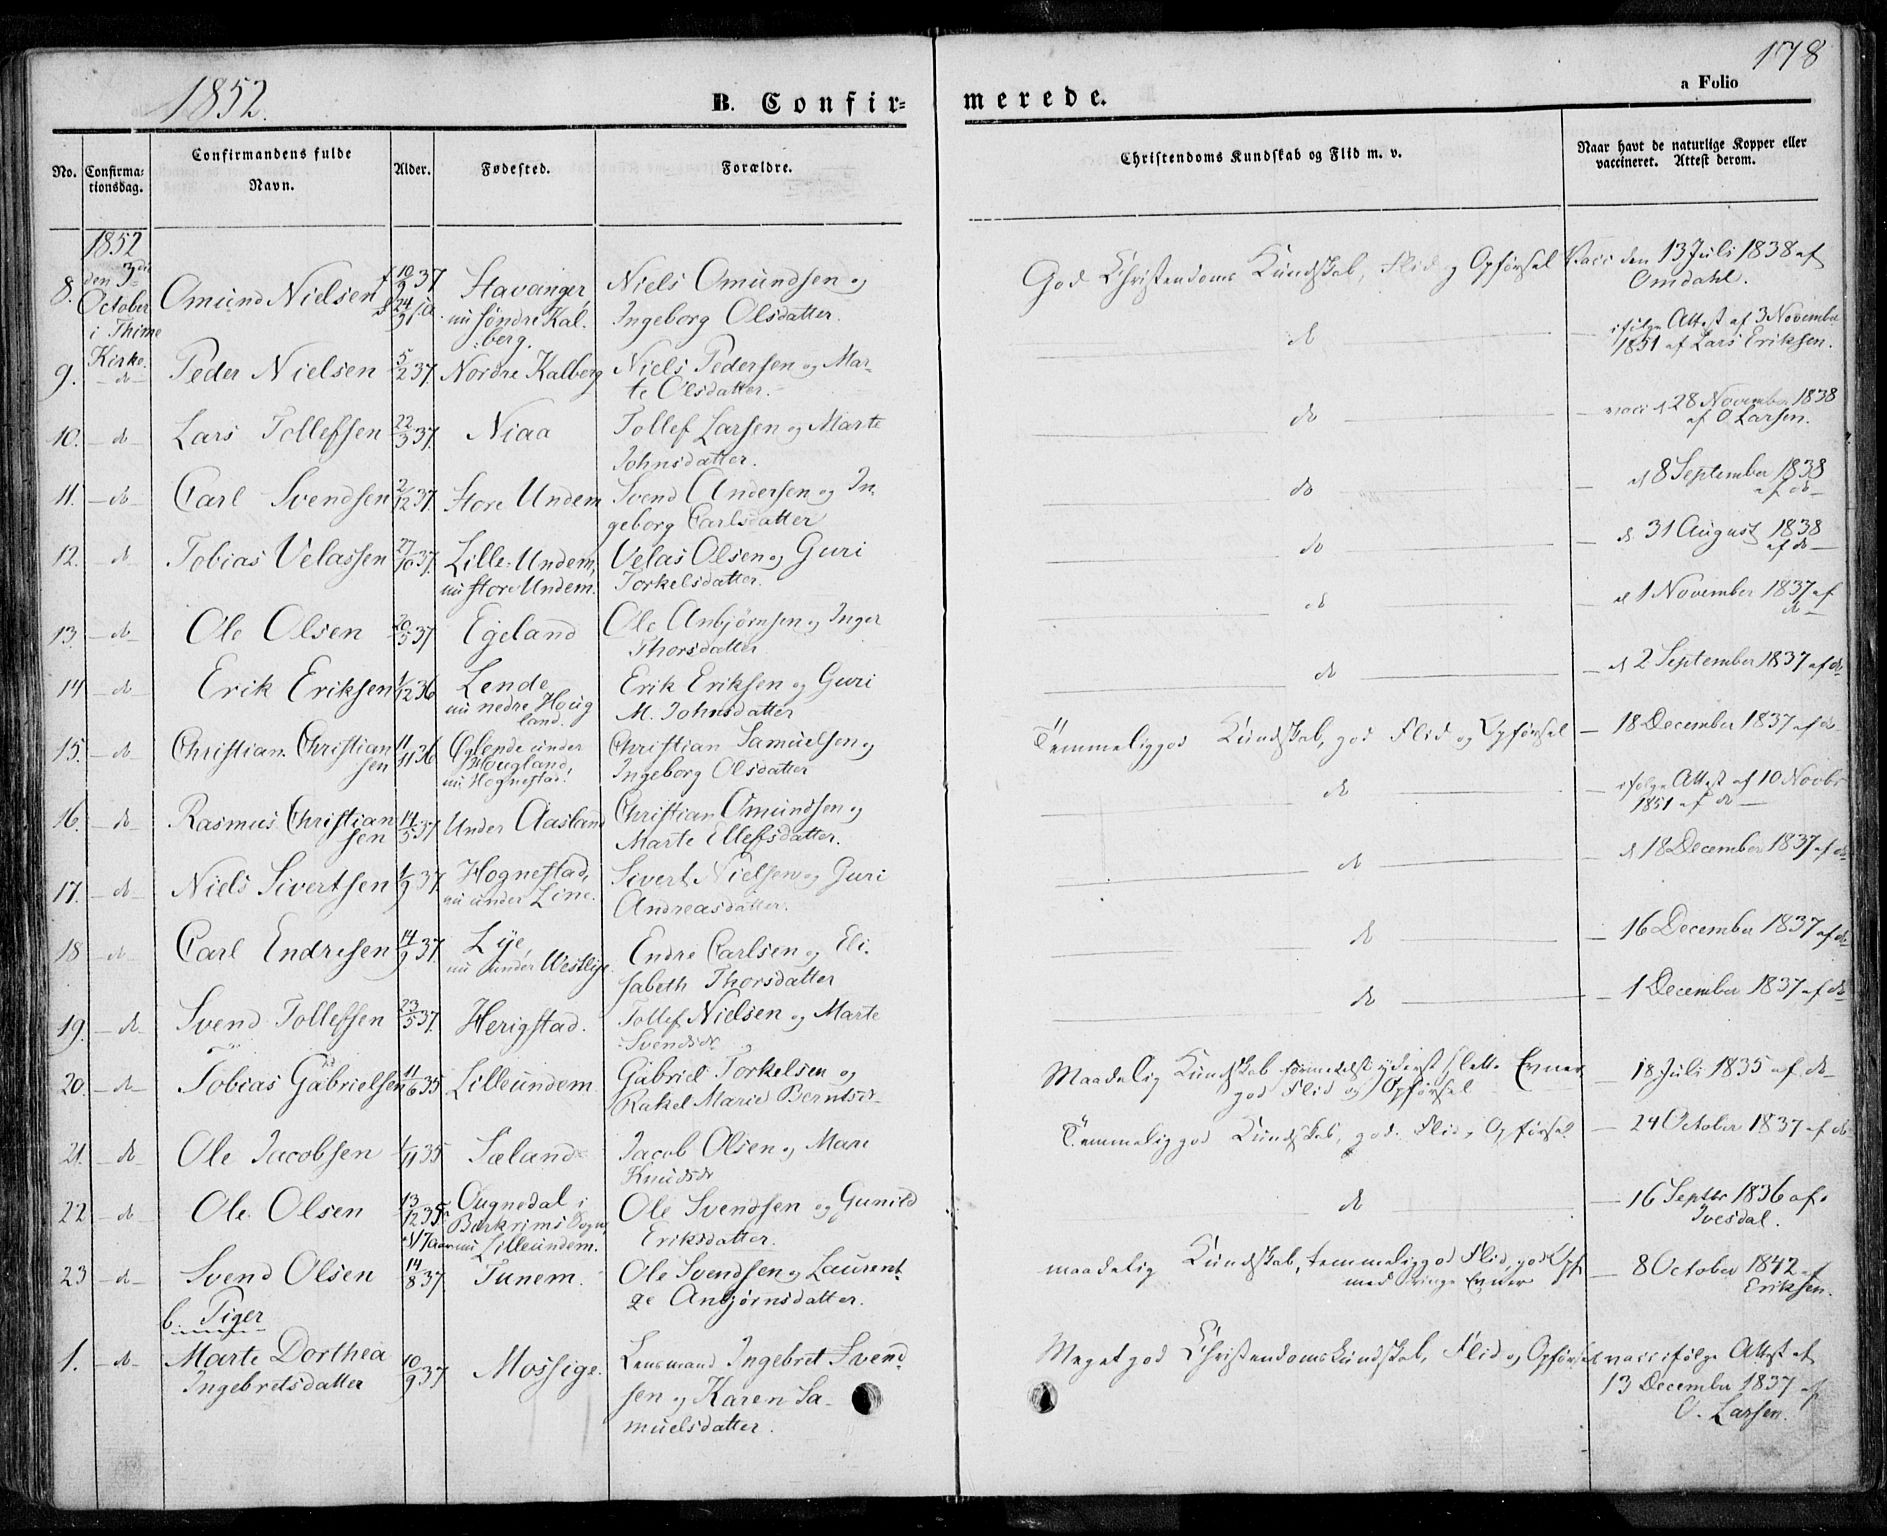 1852.
B. Confirmerede.
178
a Folio
No.
Confirmationsdag.
Confirmandens fulde
Navn.
Alder.
Fødested.
Forældre.
Christendoms Kundskab og Flid m. v.
Naar havt de naturlige Kopper eller
vaccineret. Attest derom.
1852
den 3die
October
i Thime
Kirke.
8. Omund Nielsen 37 Stavanger Niels Omundsen og God Christendoms Kundskab, Flid og Opførsel Vacc den 13 Juli 1838 af
nu søndre Kal- Ingeborg Olsdatter. Omdahl.
berg.
9. do Peder Nielsen 5/2 37. Nordre Kalberg Niels Pedersen og Mar- do ifølge Attest af 3 November
te Olsdatter. 1851 af Lars Eriksen.
10. do Lars Tollefsen 22/3 37. Niaa Tollef Larsen og Marte do vacc d 28 November 1838
Johnsdatter. af O Larsen.
11. do Carl Svendsen 2/12 37. Store Undem Svend Andersen og In- do d 8 September 1838
geborg Carlsdatter af do
12. do Tobias Velassen 27/10 37. Lille Undem, Velas Olsen og Guri do d. 31 August 1838
nu store Undem. Torkelsdatter. af do
13. do Ole Olsen 20/5 37 Egeland Ole Anbjørnsen og Inger do d 1 November 1837 af
Thorsdatter do
14 do Erik Eriksen 1/12 36 Lende Erik Eriksen og Guri do d 2 September 1837 af do
nu nedre Houg M. Johnsdatter
land.
15. do Christian Christian 11/11 36 Lende under Christian Samuelsen og Temmelig god Kundskab, god Flid og Opførsel 18 December 1837 af do
sen Hougland, Ingeborg Olsdatter
nu Hognestad.
16. do Rasmus Christian 14/5 37. Under Aasland Christian Omundsen og do ifølge Attest af 10 Novbr
sen Marte Ellefsdatter. 1851 af do
17. do Niels Sivertsen 1/9 37. Hognestad, Sivert Nielsen og Guri do d 18 December 1837 af do
nu under Line. Andreasdatter.
18 do Carl Endresen 14/9 37. Lye, Endre Carlsen og Eli- do 16 December 1837 af do
nu under Westlye. sabeth Thorsdatter
19. do Svend Tollefsen 23/5 37. Herigstad. Tollef Nielsen og Marte do 1 December 1837 af do
Svendsdr
20. do Tobias Gabrielsen 11/6 35 Lilleundem. Gabriel Torkelsen og Maadelig Kundskab formedelst yderst slette Evner 18 Juli 1835 af do
Rakel Marie Berntsdr god Flid og Opførsel
21. do Ole Jacobsen 1/11 35 Sæland Jacob Olsen og Mari Temmelig god Kundskab, god Flid, Opførsel 24 October 1837 af do
Knudsdr
22 do Ole Olsen 13/12 35 Ougnedal i Ole Svendsen og Gunild do 16 Septbr 1836 af
17 Aar Birkrims Sogn Eriksdatter. Ivesdal.
nu Lilleundem.
23 do Svend Olsen 14/8 37. Tunem. Ole Svendsen og Laurent- maadelig Kundskab, temmelig god Flid, god Opf. 8 October 1842 af
ze Anbjørnsdatter. med ringe Evner Eriksen.
b. Piger
1. do Marte Dorthea 10/9 37 Mossige. Lensmand Ingebret Svend Meget god Christendomskundskab, Flid og Opførsel vacc ifølge Attest af
Ingebretsdatter sen og Karen Sa- 13 December 1837 af
muelsdatter. O. Larsen.